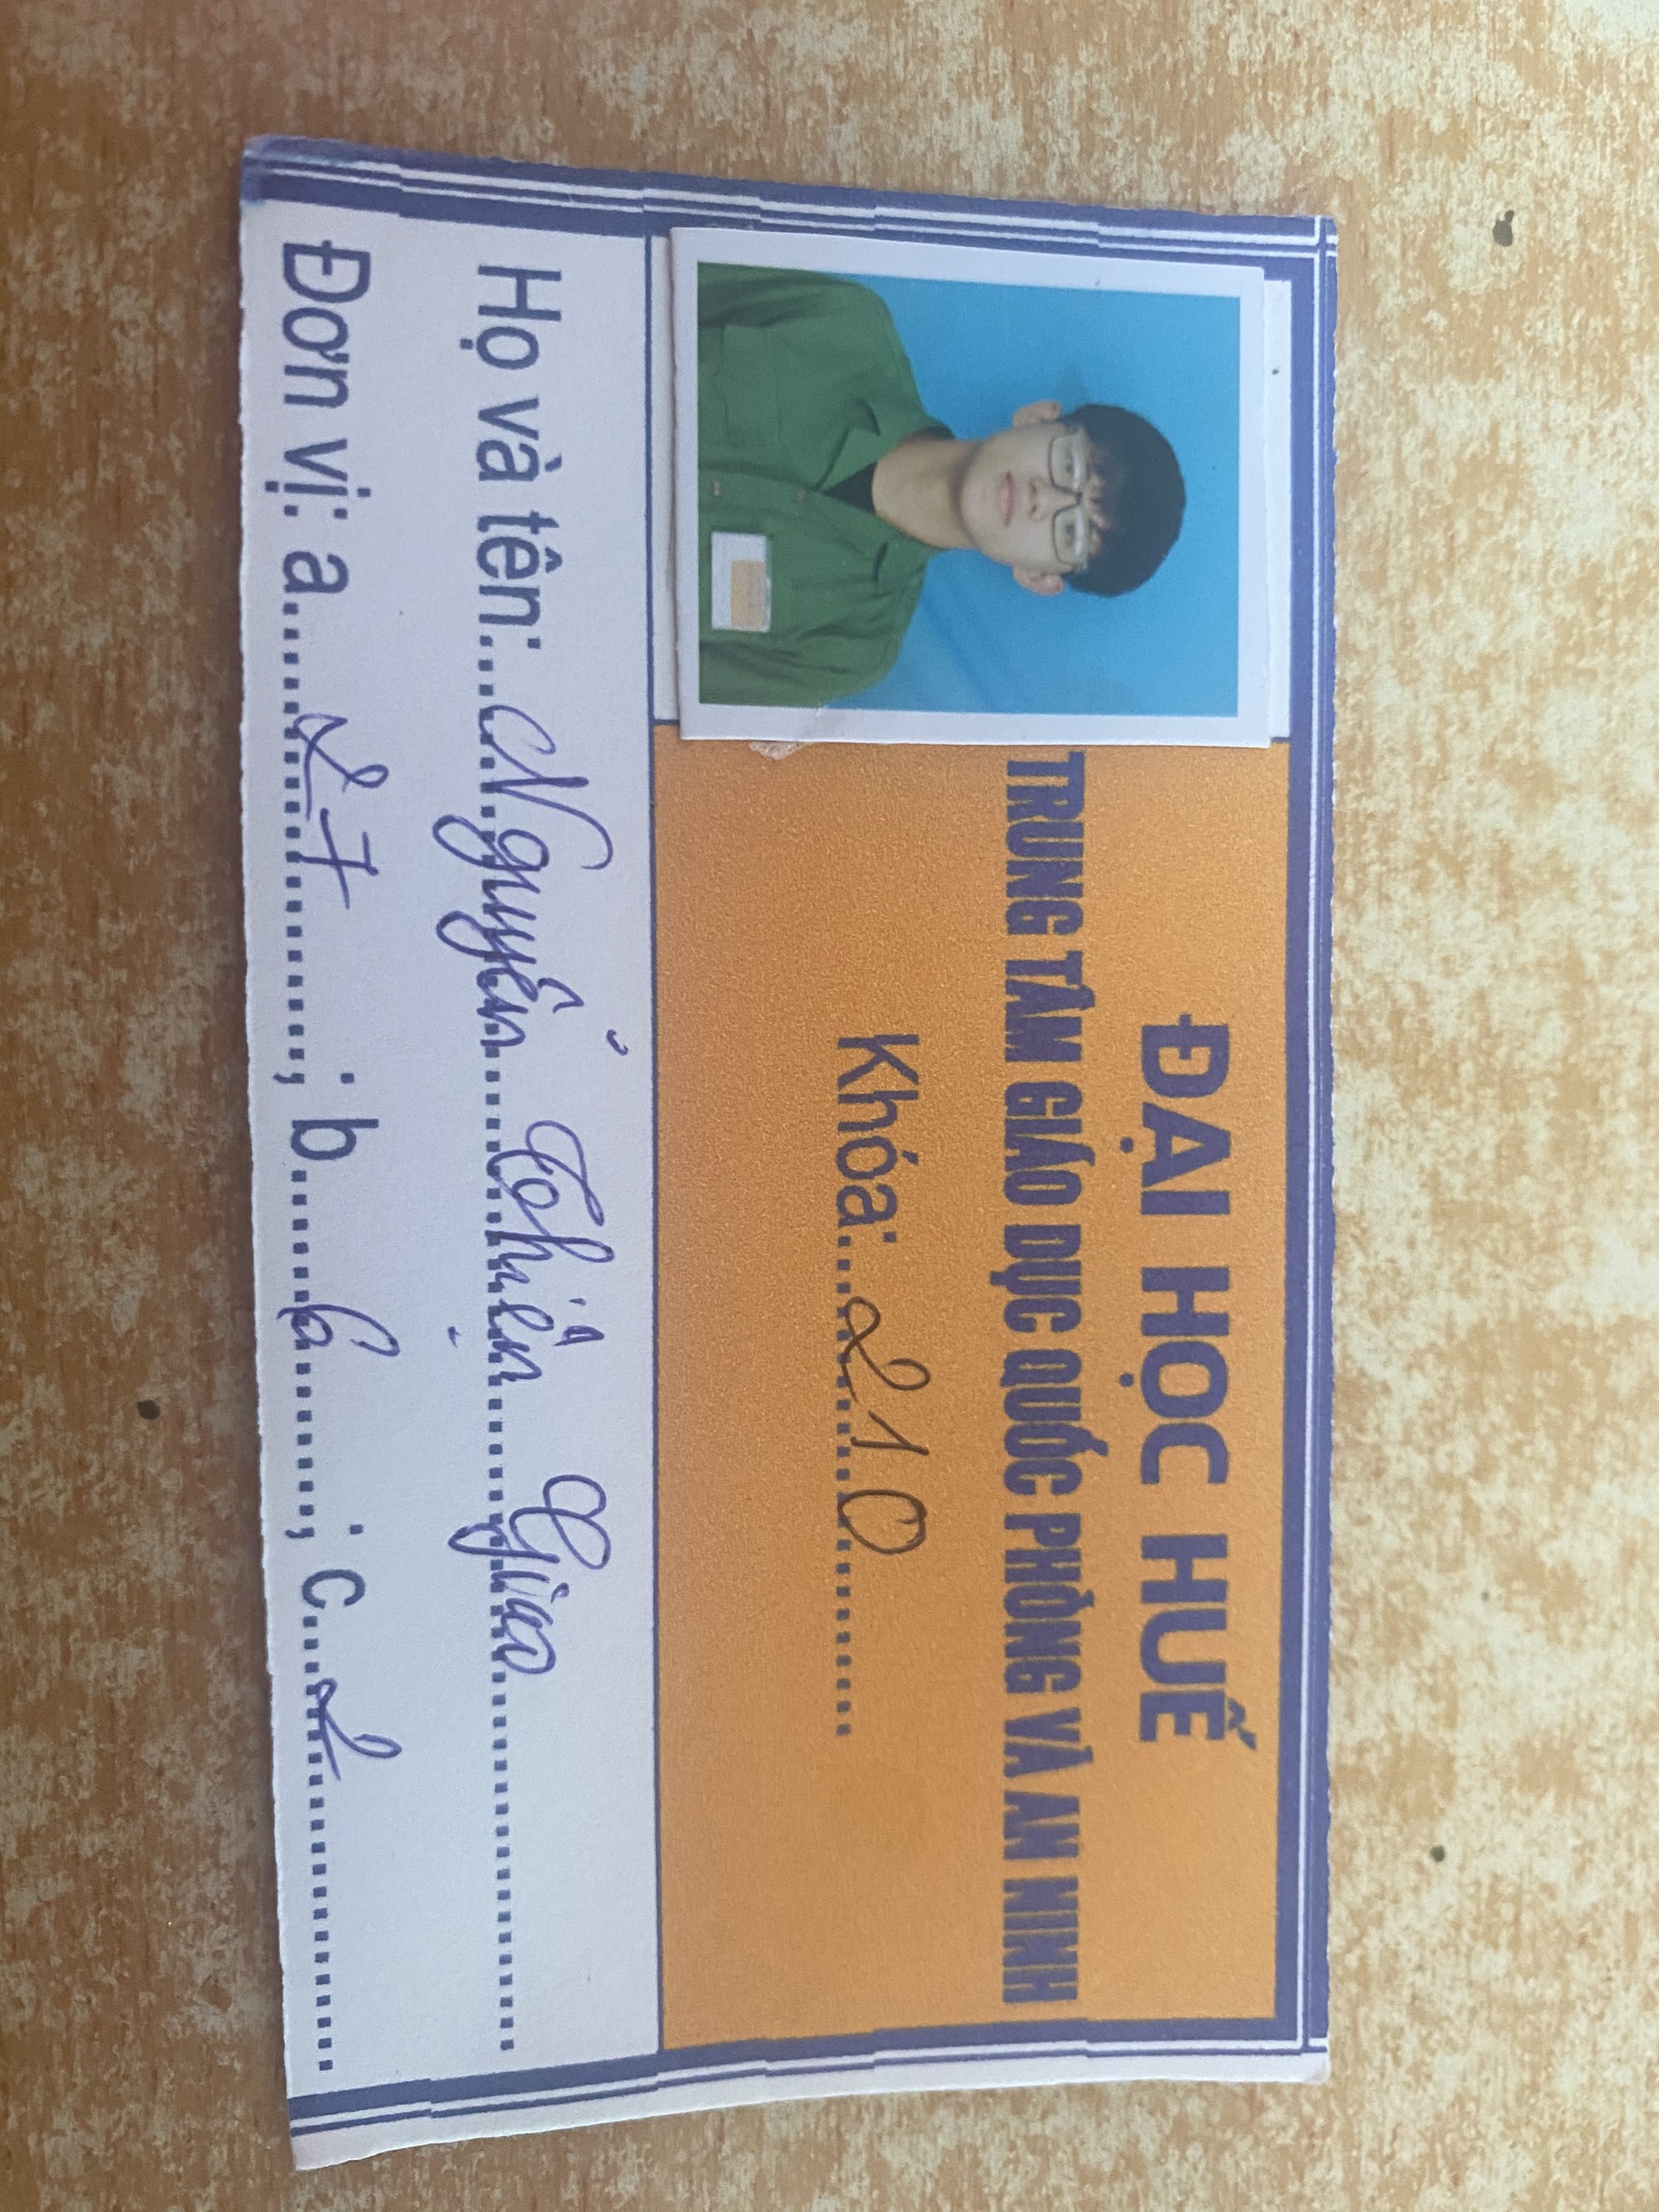 ĐẠI HỌC HUẾ
TRUNG TÂM GIÁO DỤC QUỐC PHÒNG VÀ AN NINH
Khóa:...210..........
Họ và tên:...Nguyễn Thiện Giao..........
Đơn vị: a.....27........; b......6........; c...2..........